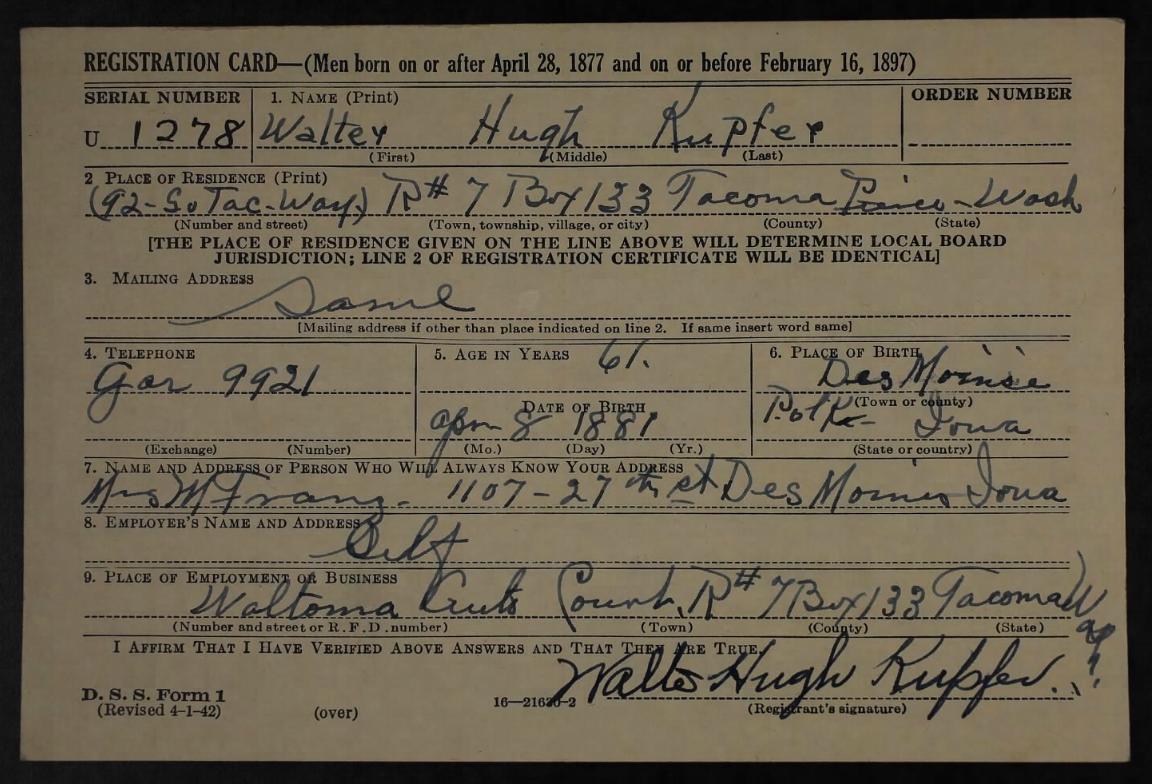 REGISTRATION CARD—(Men born on or after April 28, 1877 and on or before February 16, 1897)
SERIAL NUMBER 1. NAME (Print) ORDER NUMBER
U 1278 Walter Hugh Kupfer
(First) (Middle) (Last)
2 PLACE OF RESIDENCE (Print)
(92-So Tac-Way.) R# 7 Box 133 Tacoma Pierce-Wash
(Number and street) (Town, township, village, or city) (County) (State)
[THE PLACE OF RESIDENCE GIVEN ON THE LINE ABOVE WILL DETERMINE LOCAL BOARD
JURISDICTION; LINE 2 OF REGISTRATION CERTIFICATE WILL BE IDENTICAL]
3. MAILING ADDRESS
Same
[Mailing address if other than place indicated on line 2. If same insert word same]
4. TELEPHONE 5. AGE IN YEARS 61. 6. PLACE OF BIRTH
Gar 9921 Des Moines
DATE OF BIRTH (Town or county)
Apr 8 1881 Polk- Iowa
(Exchange) (Number) (Mo.) (Day) (Yr.) (State or country)
7. NAME AND ADDRESS OF PERSON WHO WILL ALWAYS KNOW YOUR ADDRESS
Mrs M Franz- 1107-27th st Des Moines Iowa
8. EMPLOYER'S NAME AND ADDRESS
Self
9. PLACE OF EMPLOYMENT OR BUSINESS
Waltoma Auto Court, R# 7 Box 133 Tacoma Wash.
(Number and street or R.F.D. number) (Town) (County) (State)
I AFFIRM THAT I HAVE VERIFIED ABOVE ANSWERS AND THAT THEY ARE TRUE.
Walter Hugh Kupfer.
D. S. S. Form 1
(Revised 4-1-42) (over) 16—21630-2 (Registrant's signature)